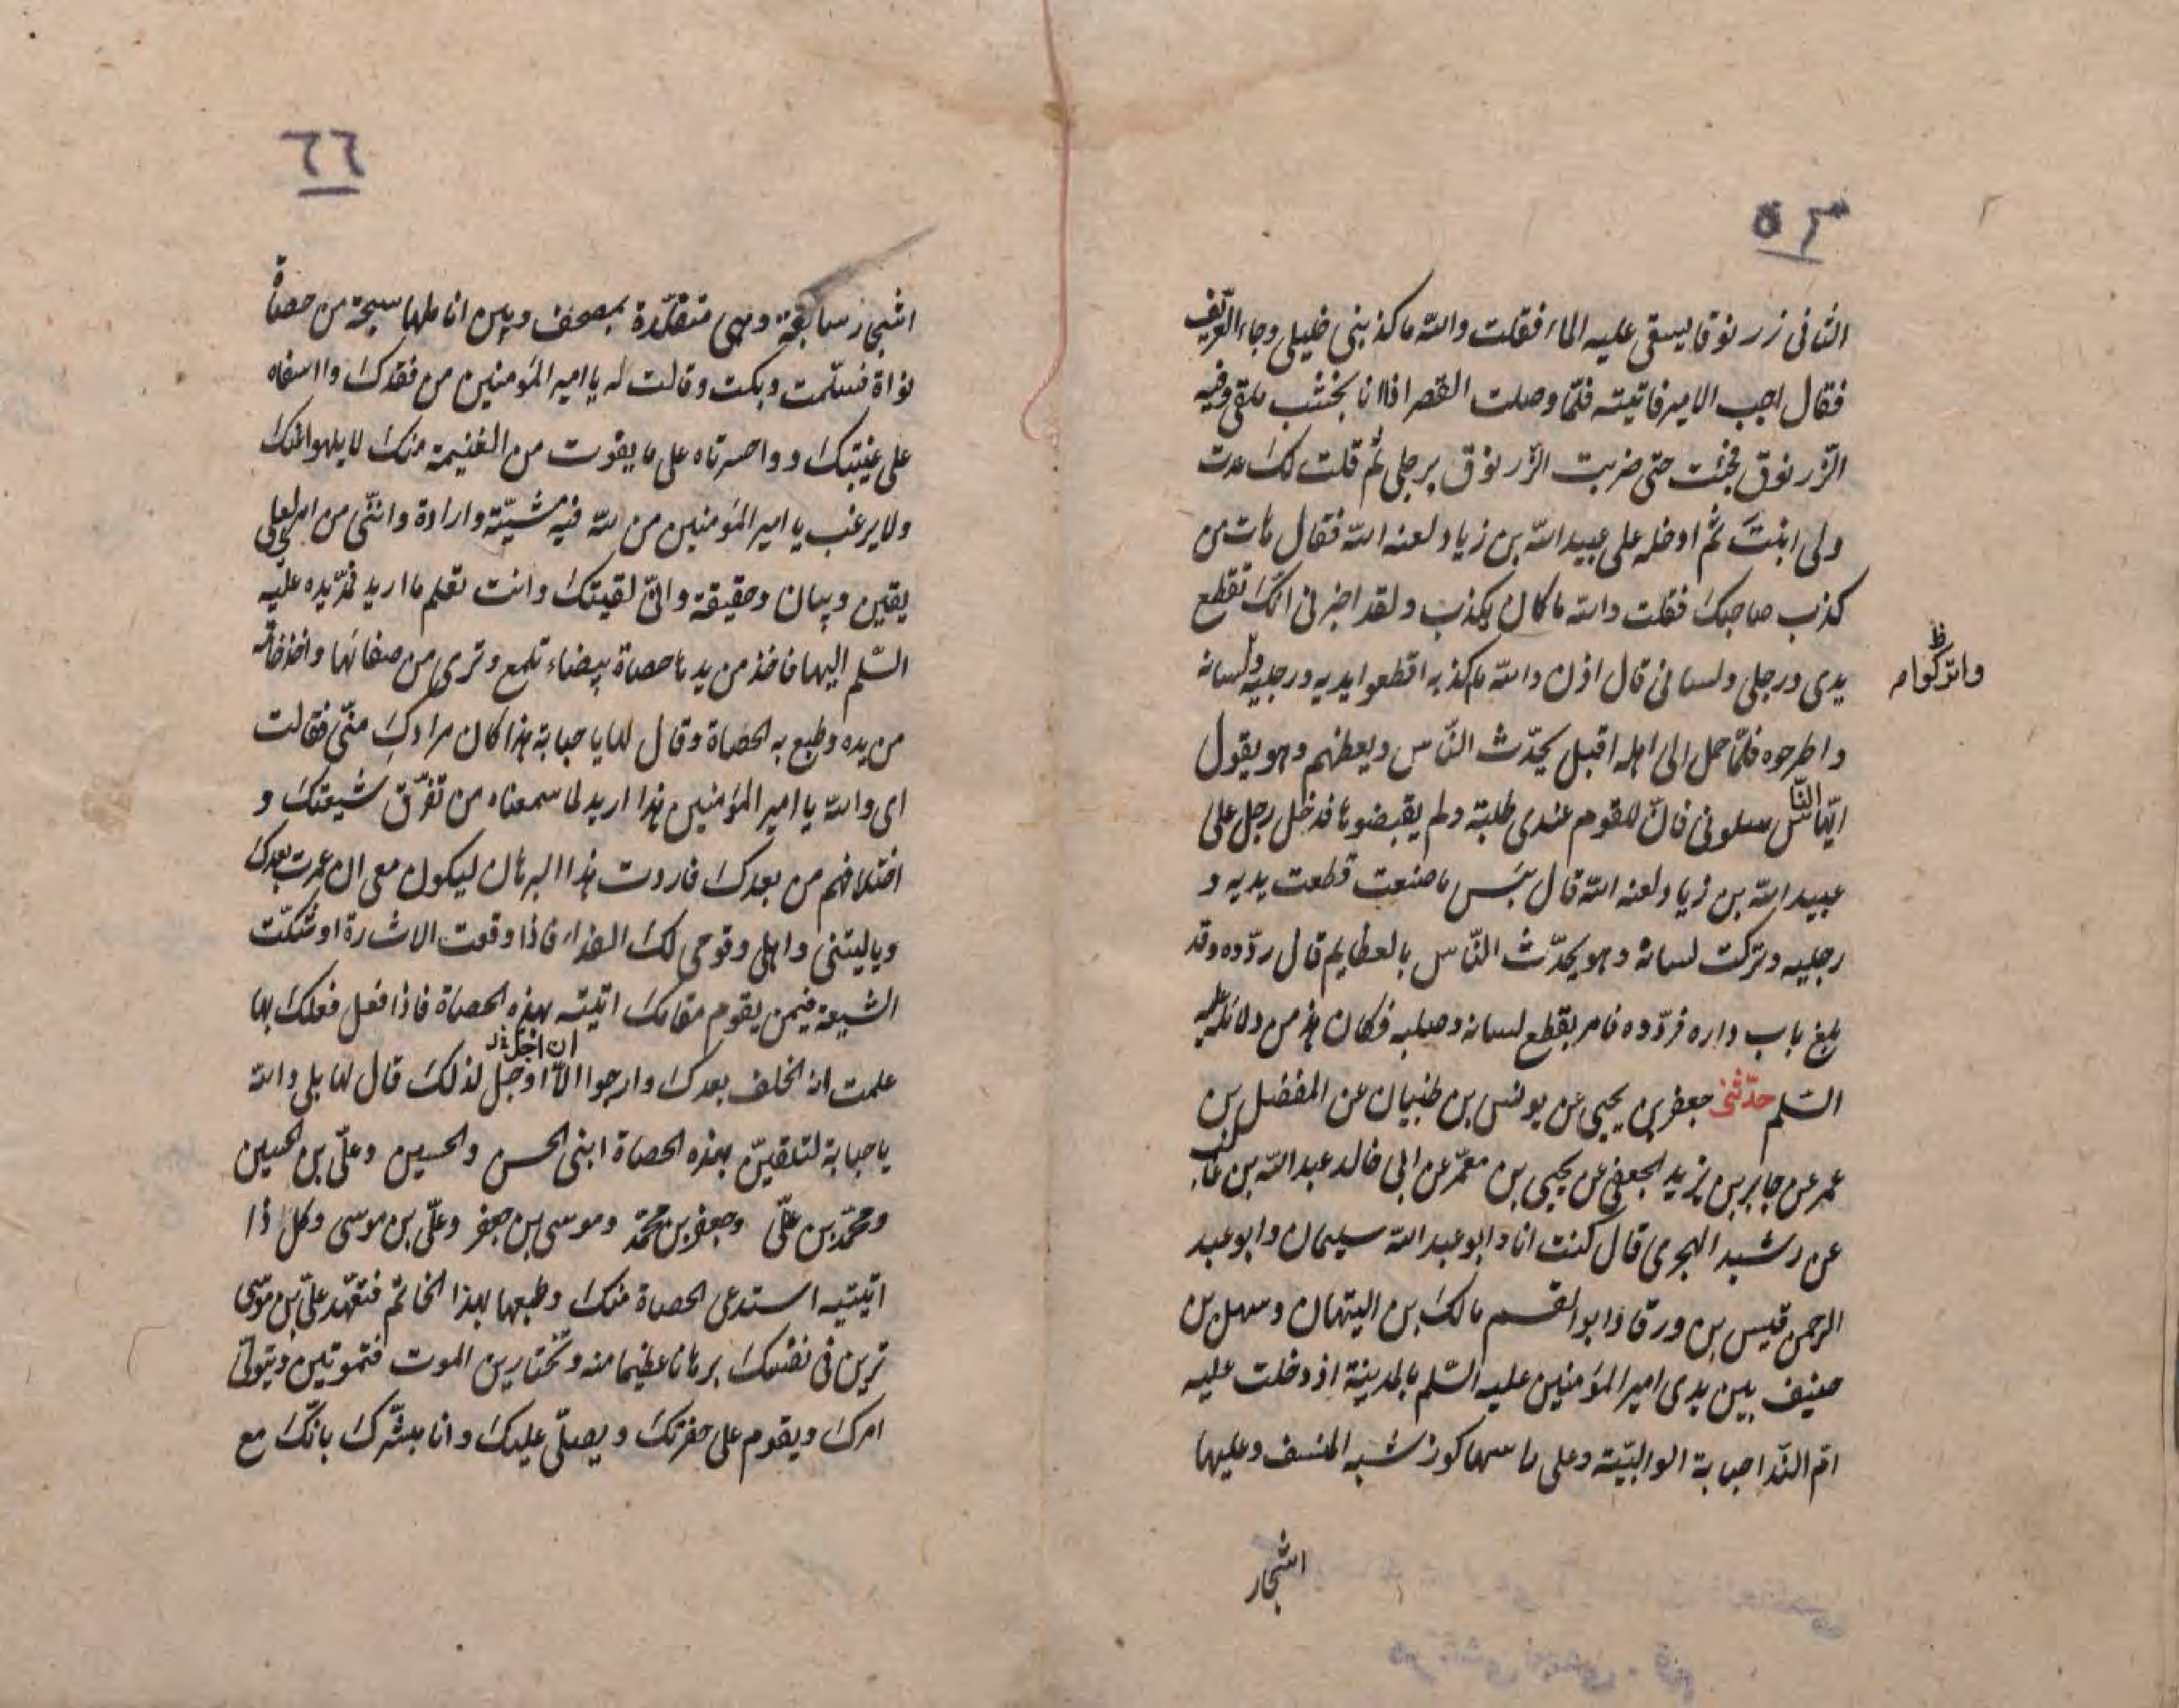 الثانى زرنوقا يسقى عليه الماء فقلت والله ما كذبنى خليلى وجاء العريف
فقال اجب الامير فاتيته فلمّا وصلت القصر اذا انا بخشب ملقى وفيه
الزرنوق فجئت حتى ضربت الزرنوق برجلى ثم قلت لك عدت
ولى انبت ثم ادخله على عبيد الله بن زياد لعنه الله فقال هات من
كذب صاحبك فقلت والله ما كان يكذب ولقد اخبرنى انك تقطع
يدى ورجلى ولسانى قال اذن والله نكذبه اقطعوا يديه ورجليه ولسانه
واتركوا
ظ
واطرحوه فلمّا حمل الى اهله اقبل يحدّث النّاس ويعظهم وهو يقول
ايّها النّاس سلونى فانّ للقوم عندى طلبة ولم يقبضوها فدخل رجل على
عبيد الله بن زياد لعنه الله قال بئس ما صنعت قطعت يديه و
رجليه وتركت لسانه وهو يحدّث النّاس بالعظايم قال ردّوه وقد
بلغ باب داره فردّوه فامر بقطع لسانه وصلبه فكان هذا من دلائله عليه
السّلم حدّثنى جعفر بن يحيى عن يونس بن ظبيان عن المفضل بن
عمر عن جابر بن يزيد الجعفى عن يحيى بن معمّر عن ابى خالد عبد الله بن غالب
عن رشيد الهجرى قال كنت انا وابو عبد الله سليمان وابو عبد
الرحمن قيس بن ورقا وابو القسم مالك بن التيهان وسهل بن
حنيف بين يدى امير المؤمنين عليه السّلم بالمدينة اذ دخلت عليه
امّ النّدا حبابة الوالبيّة وعلى راسها كور شبه المنسف وعليها
اشجار
٦٦
اشجار سابغة وهى متقلّدة بمصحف وبين اناملها سبحة من حصاة
نواة فسلّمت وبكت وقالت له يا امير المؤمنين من فقدك وااسفاه
على غيبتك وواحسرتاه على ما يفوت من الغنيمة منك لا يلهو عنك
ولا يرغب يا امير المؤمنين من لله فيه مشيّة وارادة وانّنى من امرى لعلى
يقين وبيان وحقيقة وانّى لقيتك وانت تعلم ما اريد فمدّ يده عليه
السّلم اليها فاخذ من يدها حصاة بيضاء تلمع وترى من صفائها واخذ خاتمه
من يده وطبع به الحصاة وقال لها يا حبابة هذا كان مرادك منّى فقالت
اى والله يا امير المؤمنين هذا اريد لما سمعناه من تفرّق شيعتك و
اختلافهم من بعدك فاردت هذا البرهان ليكون معى ان عمرت بعدك
وياليتنى واهلى وقومى لك الفداء فاذا وقعت الاشارة او شكّت
الشيعة فيمن يقوم مقامك اتيته بهذه الحصاة فاذا فعل فعلك بها
علمت انه الخلف بعدك وارجوا الّا اوجل لذلك قال لها بلى والله
يا حبابة لتلقينّ بهذه الحصاة ابنى الحسن والحسين وعلّى بن الحسين
ومحمّد بن علّى وجعفر بن محمّد وموسى بن جعفر وعلّى بن موسى وكل اذا
اتيتيه استدعى الحصاة منك وطبعها بهذا الخاتم فبعهد علّى بن موسى
ترين فى نفسك برهانا عظيما منه وتختارين الموت فتموتين ويتولّى
امرك ويقوم على حفرتك ويصلّى عليك وانا مبشّرك بانّك مع